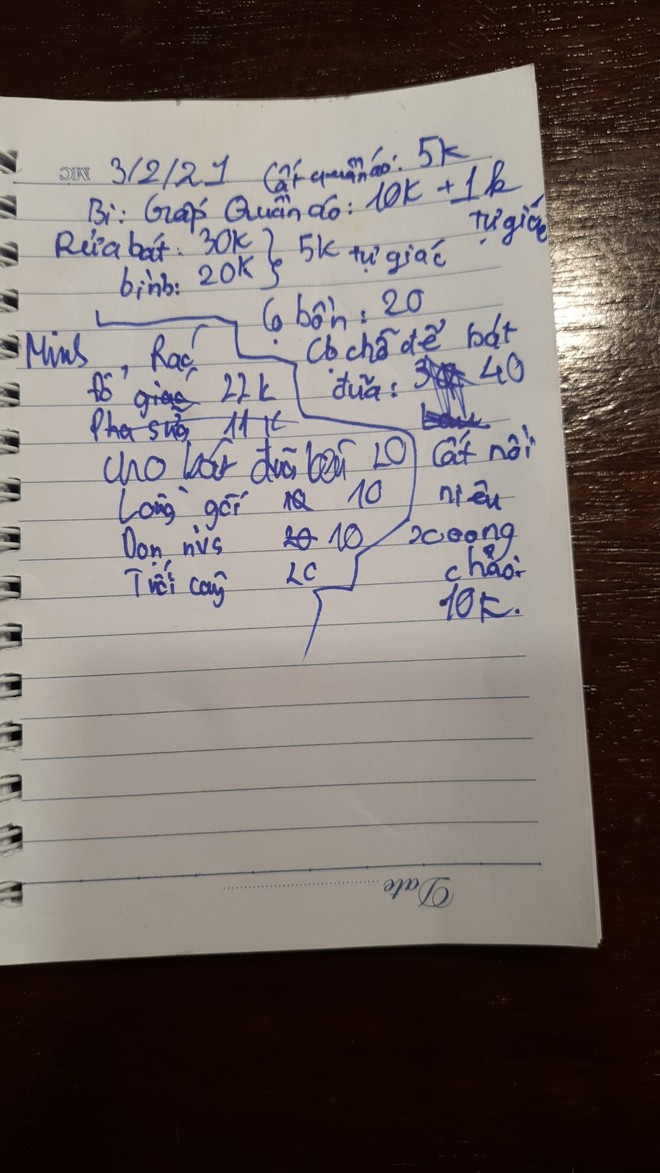 3/2/21 Cất quần áo: 5k
Bi: Gấp Quần áo: 10k + 1k
tự giác
Rửa bát: 30K } 5k tự giác
bình: 20K
Cọ bồn: 20
Minh, Rác
Cọ chỗ để bát
đũa: 40
đổ 22k
Pha sữa 11K
cho bát đũa bẩn 20
Lồng gối 10
Dọn nvs 10
Tưới cây 20
Cất nồi
niêu
xoong
chảo:
10K.
Date